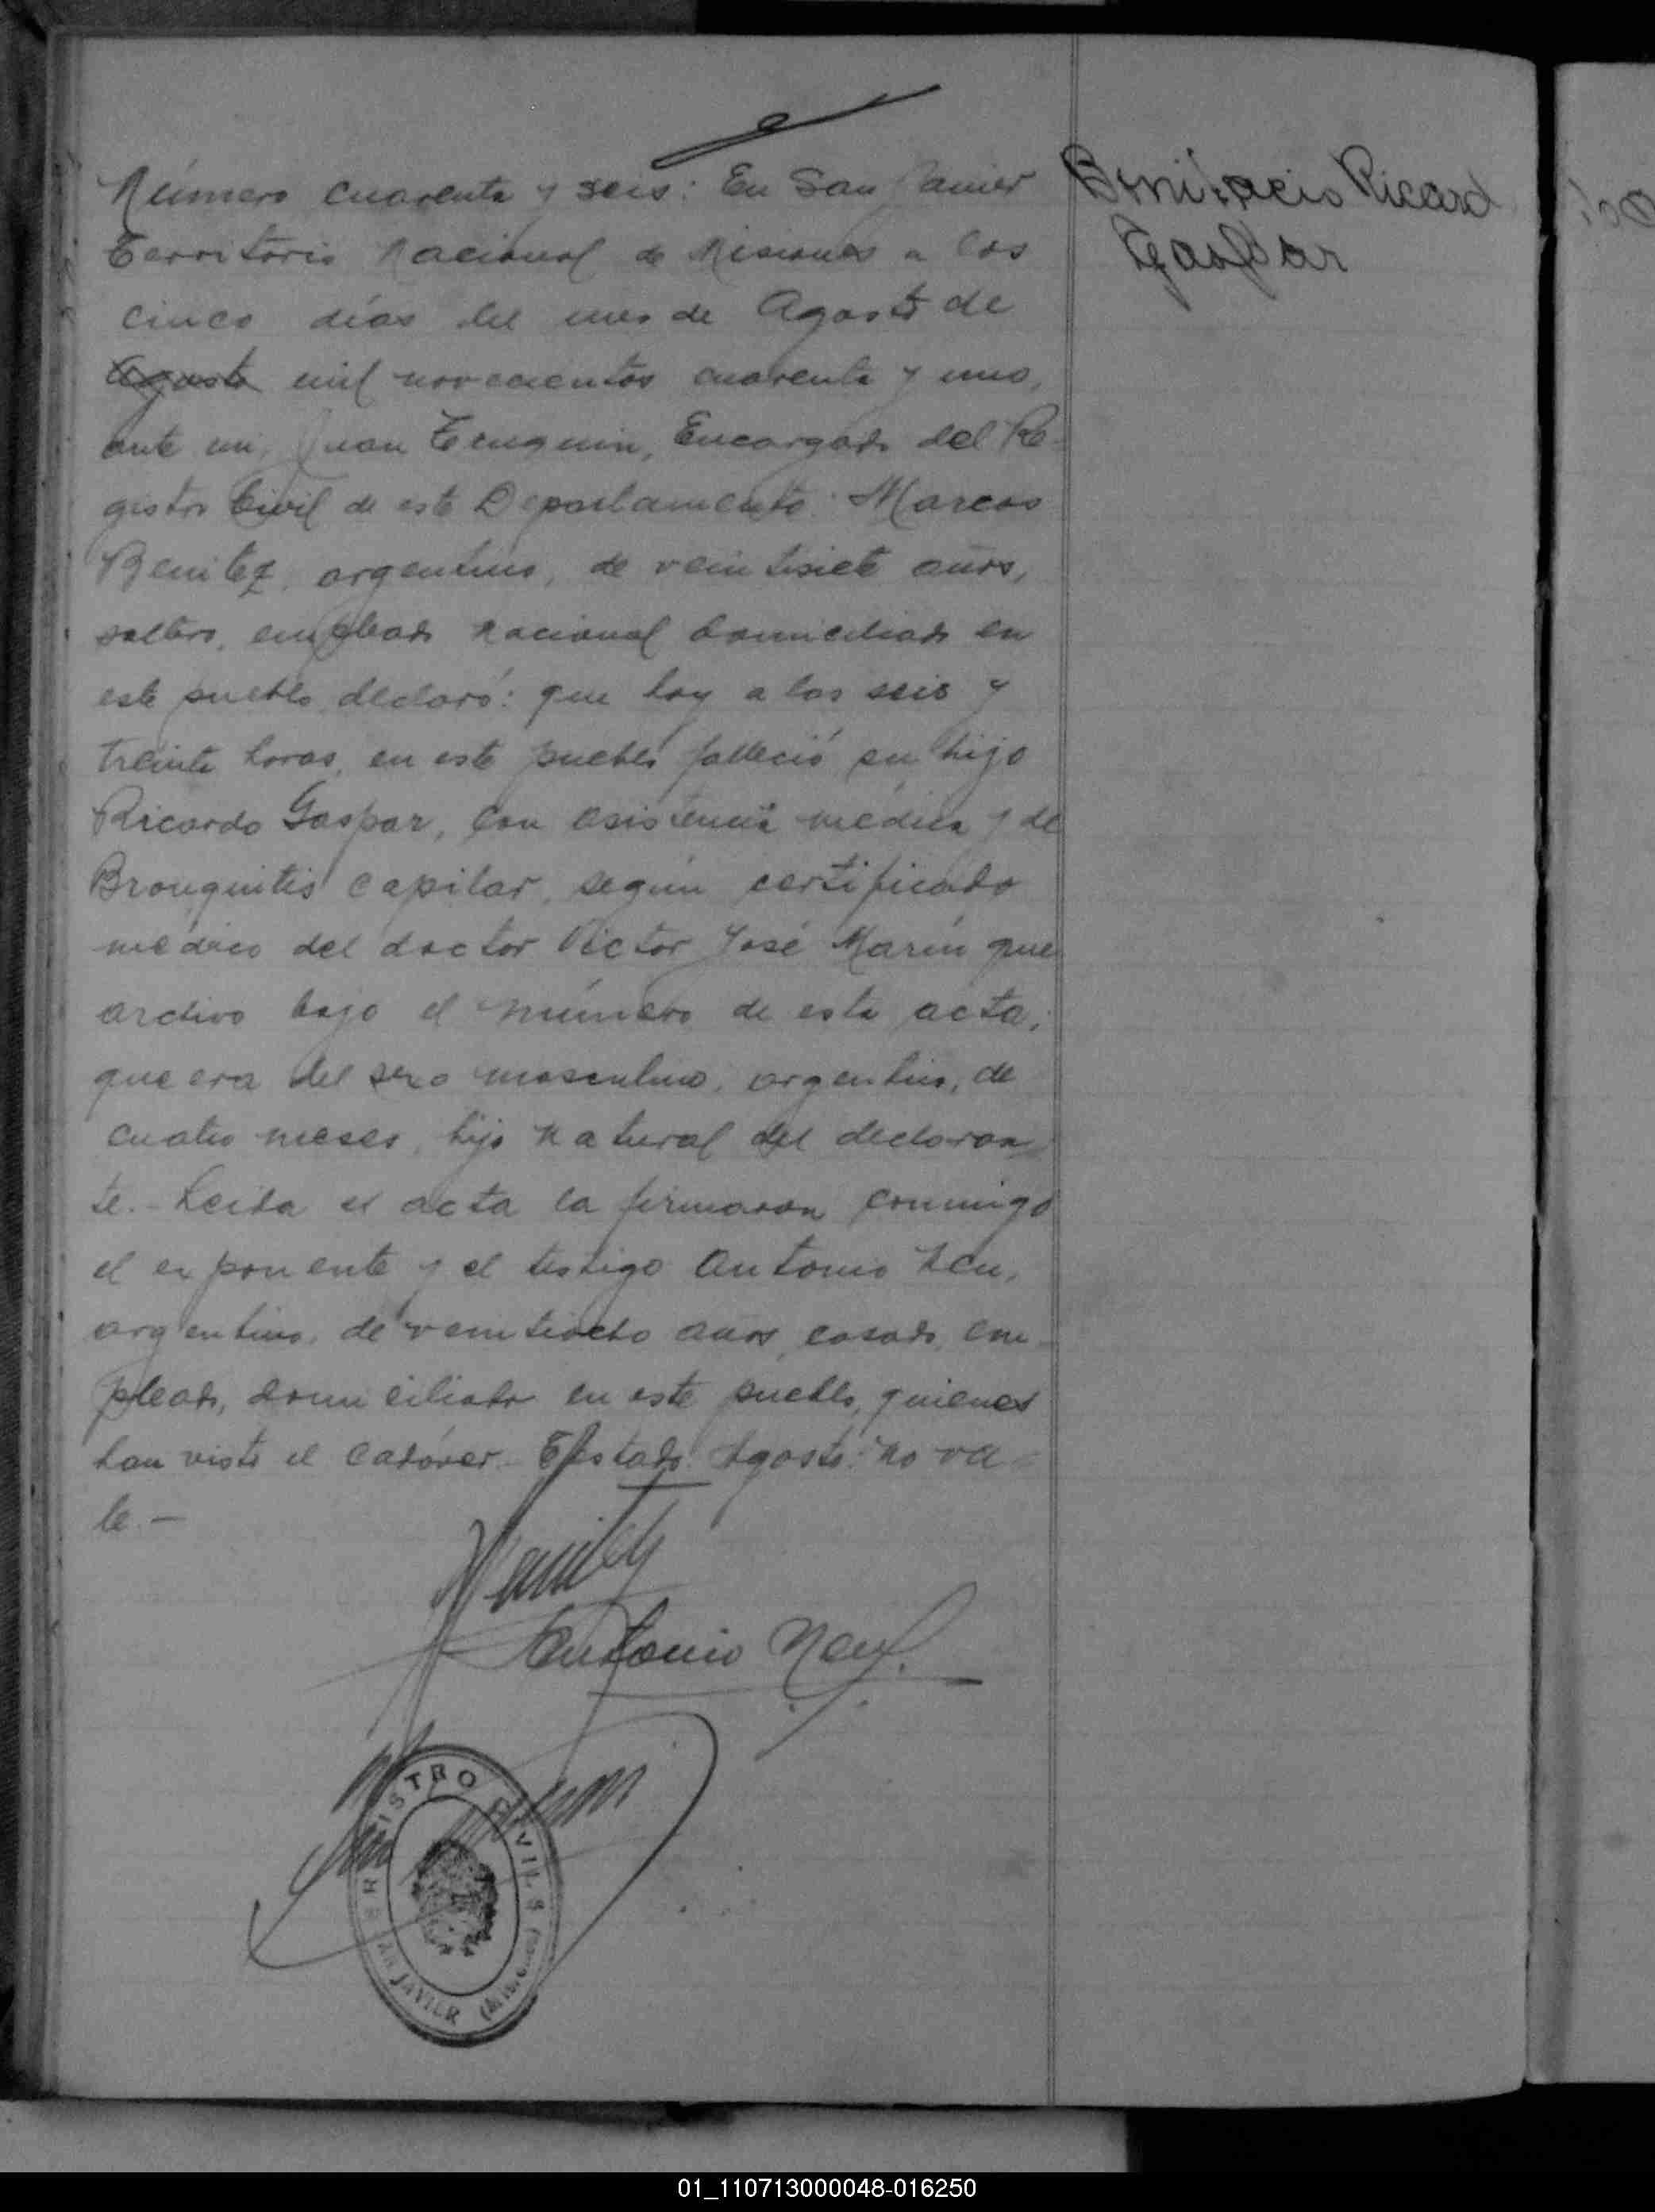 Número cuarenta y seis: En San Javier
Territorio Nacional de Misiones a los
cinco días del mes de Agosto de
Agosto mil novecientos cuarenta y uno,
ante mi, Juan Encargado del Re-
gistro Civil de este Departamento: Marcos
Benitez, argentino, de veintisiete años,
soltero, empleado nacional domiciliado en
este pueblo, declaró: que hoy a las seis y
treinta horas, en este pueblo falleció su hijo
Ricardo Gaspar, con asistencia médica y de
Bronquitis capilar, según certificado
médico del doctor Victor José Marín que
archivo bajo el número de esta acta;
que era del sexo masculino, argentino, de
cuatro meses, hijo natural del declaran
te.- Leida el acta la firmaron conmigo
el exponente y el testigo Antonio Neu,
argentino, de veintiocho años, casado, em-
pleado, domiciliado en este pueblo, quienes
han visto el cadáver.- Testado: Agosto: no va-
le.-
Bonifacio Ricard
Gaspar
Antonio Neu.
REGISTRO CIVIL
SAN JAVIER (Misiones)
01_110713000048-016250